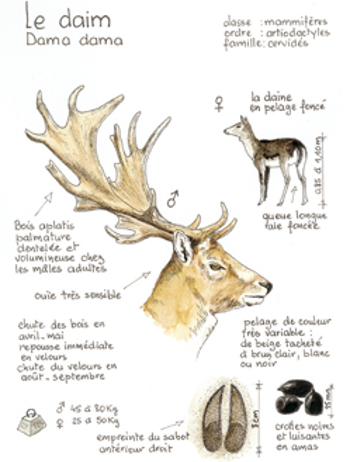 Le daim
Dama dama
classe : mammifères
ordre : artiodactyles
famille : cervidés
♀
la daine
en pelage foncé
0,85 à 1,10m
queue longue
raie foncée
♂
Bois aplatis
palmature
dentelée et
volumineuse chez
les mâles adultes
ouïe très sensible
chute des bois en
avril-mai
repousse immédiate
en velours
chute du velours en
août-septembre
pelage de couleur
très variable :
de beige tacheté
à brun clair, blanc
ou noir
♂ 45 à 80Kg
♀ 25 à 50Kg
empreinte du sabot
antérieur droit
8cm
15mm
crottes noires
et luisantes
en amas